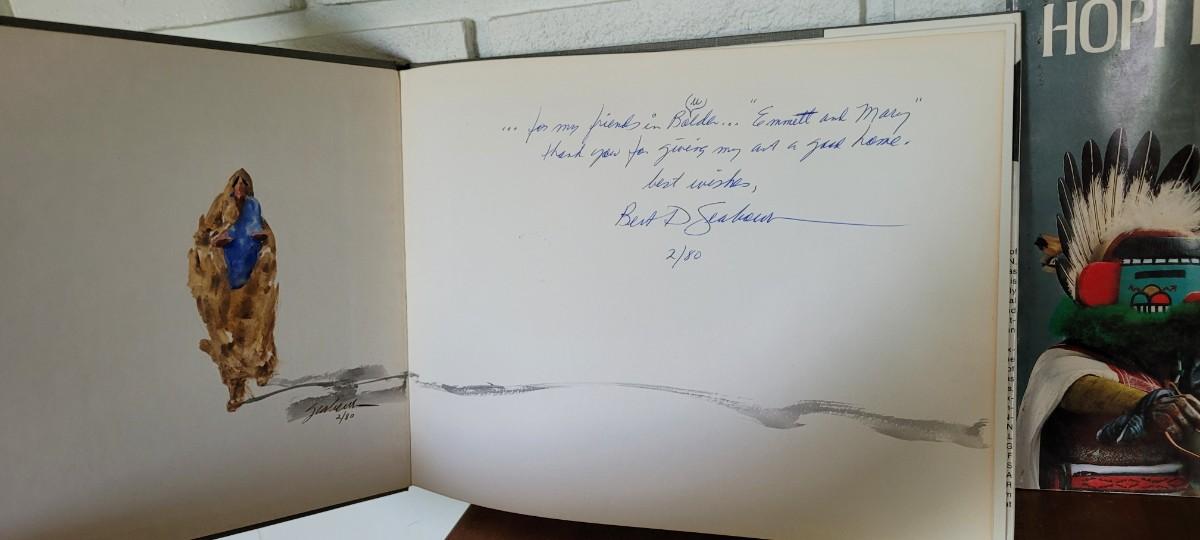 ... for my friends in Bolder... "Emmett and Mary"
(u)
thank you for giving my art a good home.
best wishes,
Bert D Seabourn
2/80
Seabourn
2/80
HOPI